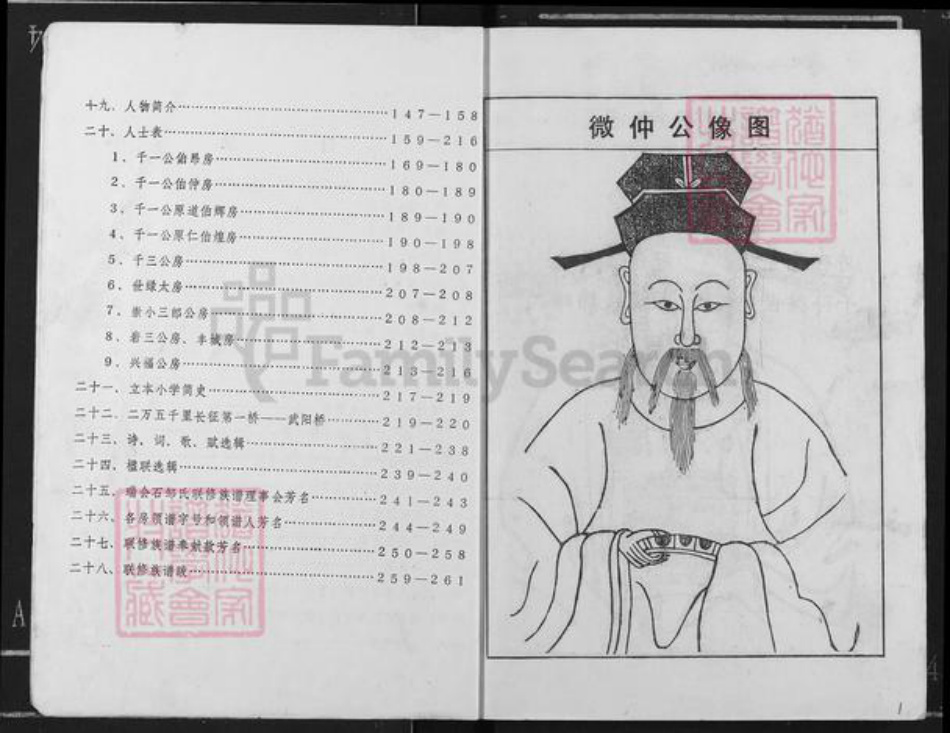 十九、人物简介……147—158
二十、人士表……159—216
1、千一公伯昂房……169—180
2、千一公伯仲房……180—189
3、千一公原道伯辉房……189—190
4、千一公原仁伯煌房……190—198
5、千三公房……198—207
6、世绿大房……207—208
7、崇小三郎公房……208—212
8、岩三公房、丰城房……212—213
9、兴福公房……213—216
二十一、立本小学简史……217—219
二十二、二万五千里长征第一桥——武阳桥……219—220
二十三、诗、词、歌、赋选辑……221—238
二十四、楹联选辑……239—240
二十五、瑞会石邹氏联修族谱理事会芳名……241—243
二十六、各房领谱字号和领谱人芳名……244—249
二十七、联修族谱奉献款芳名……250—258
二十八、联修族谱跋……259—261
FamilySearch
微仲公像图
1
A
4